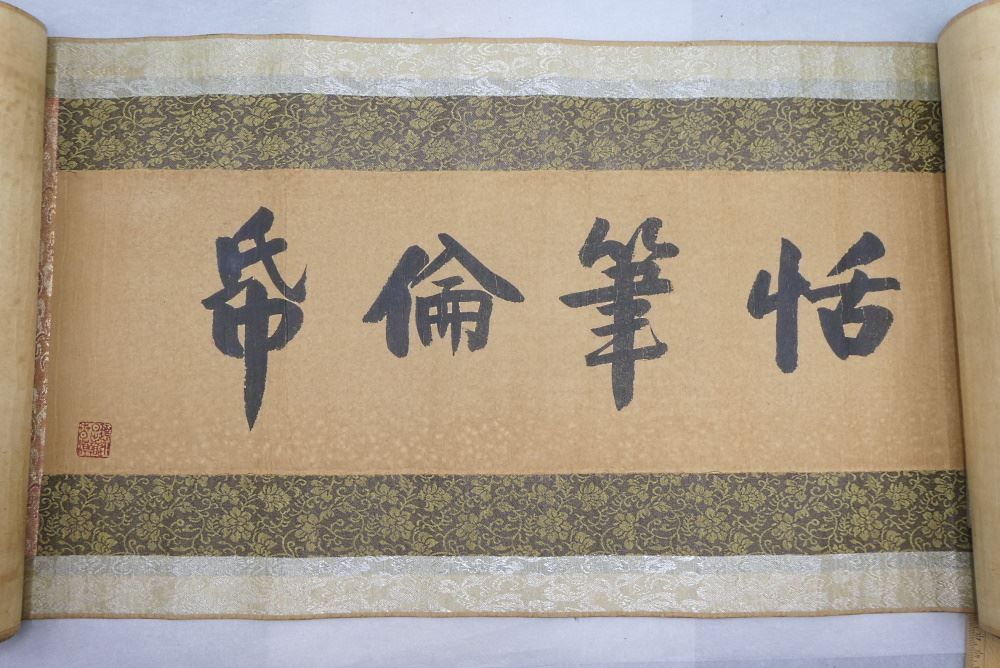 恬筆倫帋